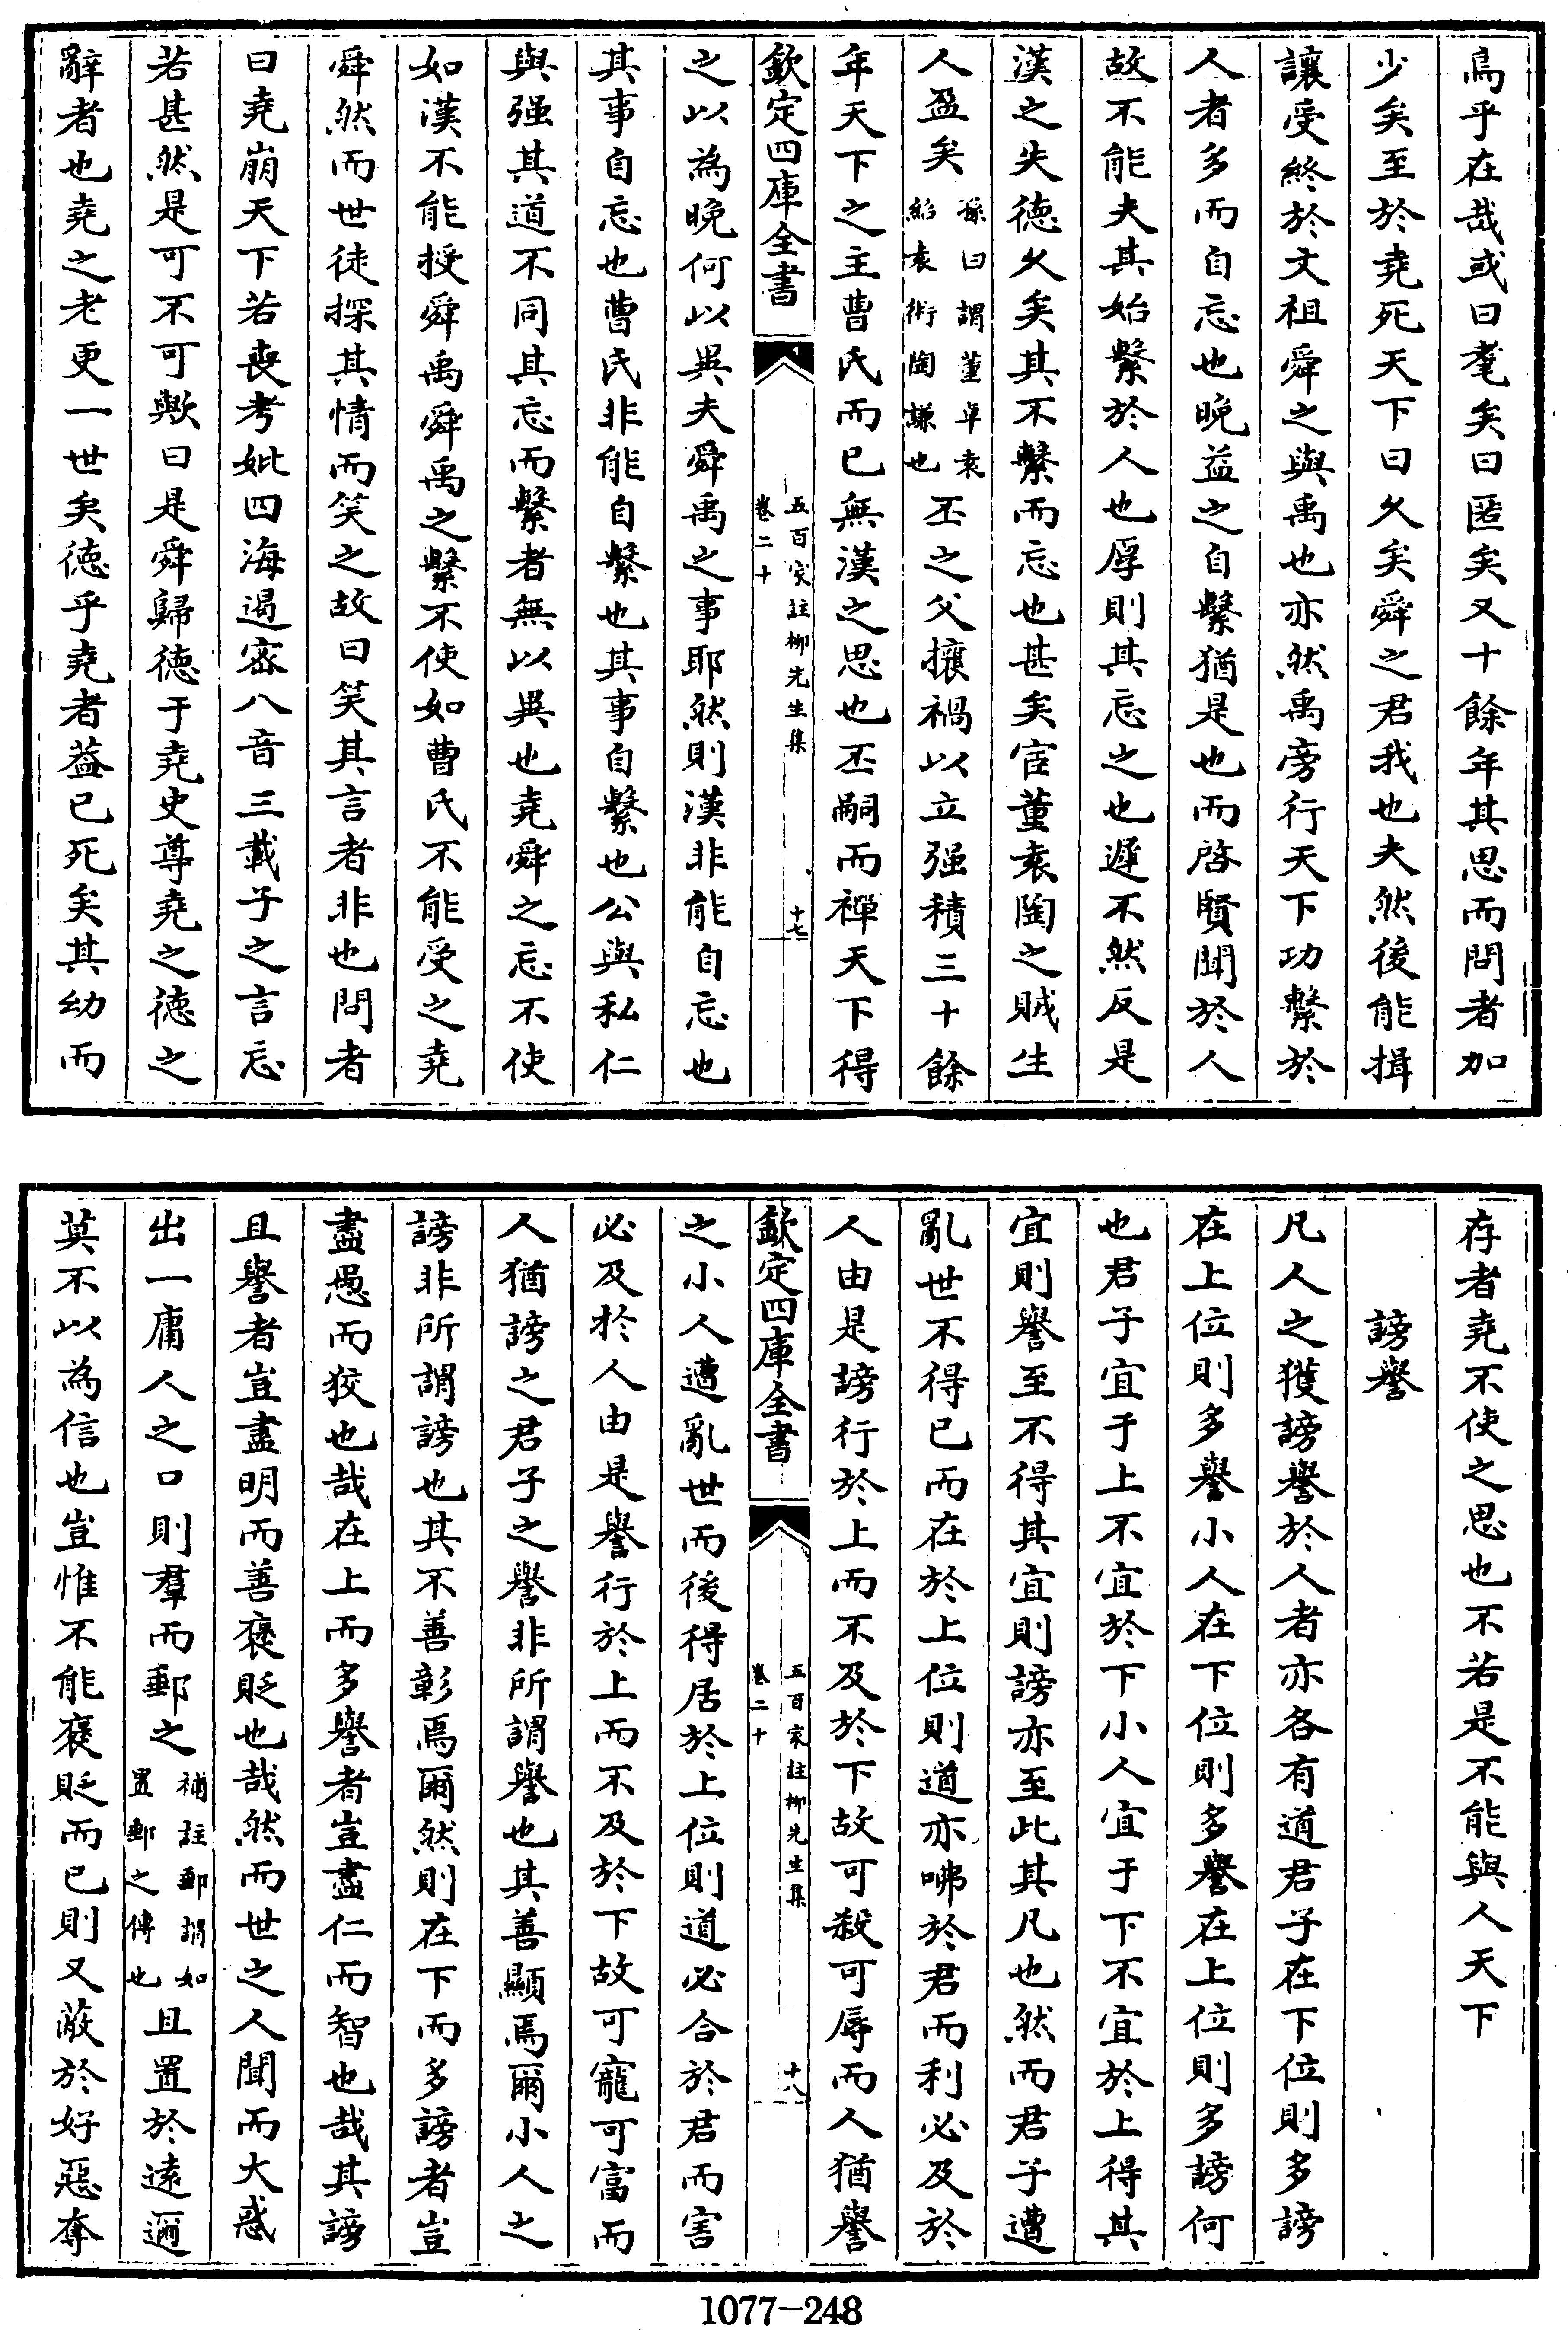 烏乎在哉或曰耄矣曰匿矣又十餘年其思而問者加
少矣至於堯死天下曰久矣舜之君我也夫然後能揖
讓受終於文祖舜之與禹也亦然禹旁行天下功繫於
人者多而自忘也晚益之自繫猶是也而啓賢聞於人
故不能夫其始繫於人也厚則其忘之也遲不然反是
漢之失德久矣其不繫而忘也甚矣宦董袁陶之賊生
人盈矣孫曰謂董卓袁紹袁術陶謙也丕之父攘禍以立强積三十餘
年天下之主曹氏而已無漢之思也丕嗣而禪天下得
欽定四庫全書
五百家註柳先生集
卷二十
十七
之以為晚何以異夫舜禹之事耶然則漢非能自忘也
其事自忘也曹氏非能自繫也其事自繫也公與私仁
與强其道不同其忘而繫者無以異也堯舜之忘不使
如漢不能授舜禹舜禹之繫不使如曹氏不能受之堯
舜然而世徒探其情而笑之故曰笑其言者非也問者
曰堯崩天下若喪考妣四海遏密八音三載子之言忘
若甚然是可不可歟曰是舜歸德于堯史尊堯之德之
辭者也堯之老更一世矣德乎堯者葢已死矣其幼而
存者堯不使之思也不若是不能與人天下
謗譽
凡人之獲謗譽於人者亦各有道君子在下位則多謗
在上位則多譽小人在下位則多譽在上位則多謗何
也君子宜于上不宜於下小人宜于下不宜於上得其
宜則譽至不得其宜則謗亦至此其凡也然而君子遭
亂世不得已而在於上位則道亦咈於君而利必及於
人由是謗行於上而不及於下故可殺可辱而人猶譽
欽定四庫全書
五百家註柳先生集
卷二十
十八
之小人遭亂世而後得居於上位則道必合於君而害
必及於人由是譽行於上而不及於下故可寵可富而
人猶謗之君子之譽非所謂譽也其善顯焉爾小人之
謗非所謂謗也其不善彰焉爾然則在下而多謗者豈
盡愚而狡也哉在上而多譽者豈盡仁而智也哉其謗
且譽者豈盡明而善褒貶也哉然而世之人聞而大惑
出一庸人之口則羣而郵之補註郵謂如置郵之傳也且置於遠邇
莫不以為信也豈惟不能褒貶而已則又蔽於好惡奪
1077-248